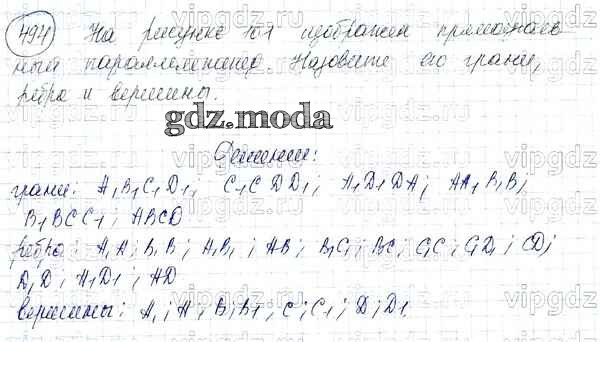 494 На рисунке 101 изображен прямоугольный параллелепипед. Назовите его грани,
ребра и вершины.
gdz.moda
Решение:
грани: A₁B₁C₁D₁; C₁CDD₁; A₁D₁DA; AA₁B₁B;
B₁BCC₁; ABCD
ребра: A₁A; B₁B; A₁B₁; AB; B₁C₁; BC; C₁C; C₁D₁; CD;
D₁D; A₁D₁; AD
вершины: A₁; A; B; B₁; C; C₁; D; D₁.
vipgdz